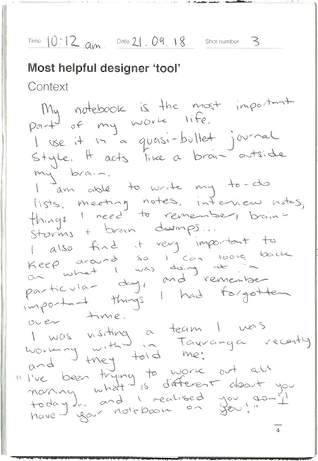 Time 10:12 am Date 21.09.18 Shot number 3
Most helpful designer 'tool'
Context
My notebook is the most important
part of my work life.
I use it in a quasi-bullet journal
style. It acts like a brain outside
my brain.
I am able to write my to-do
lists, meeting notes, interview notes,
things I need to remember, brain-
storms + brain dumps...
I also find it very important to
keep around so I can look back
on what I was doing at in
particular day, and remember
important things I had forgotten
over time.
I was visiting a team I was
working with in Tauranga recently
and they told me:
"I've been trying to work out all
morning what is different about you
today... and I realised you don't
have your notebook on you!"
4